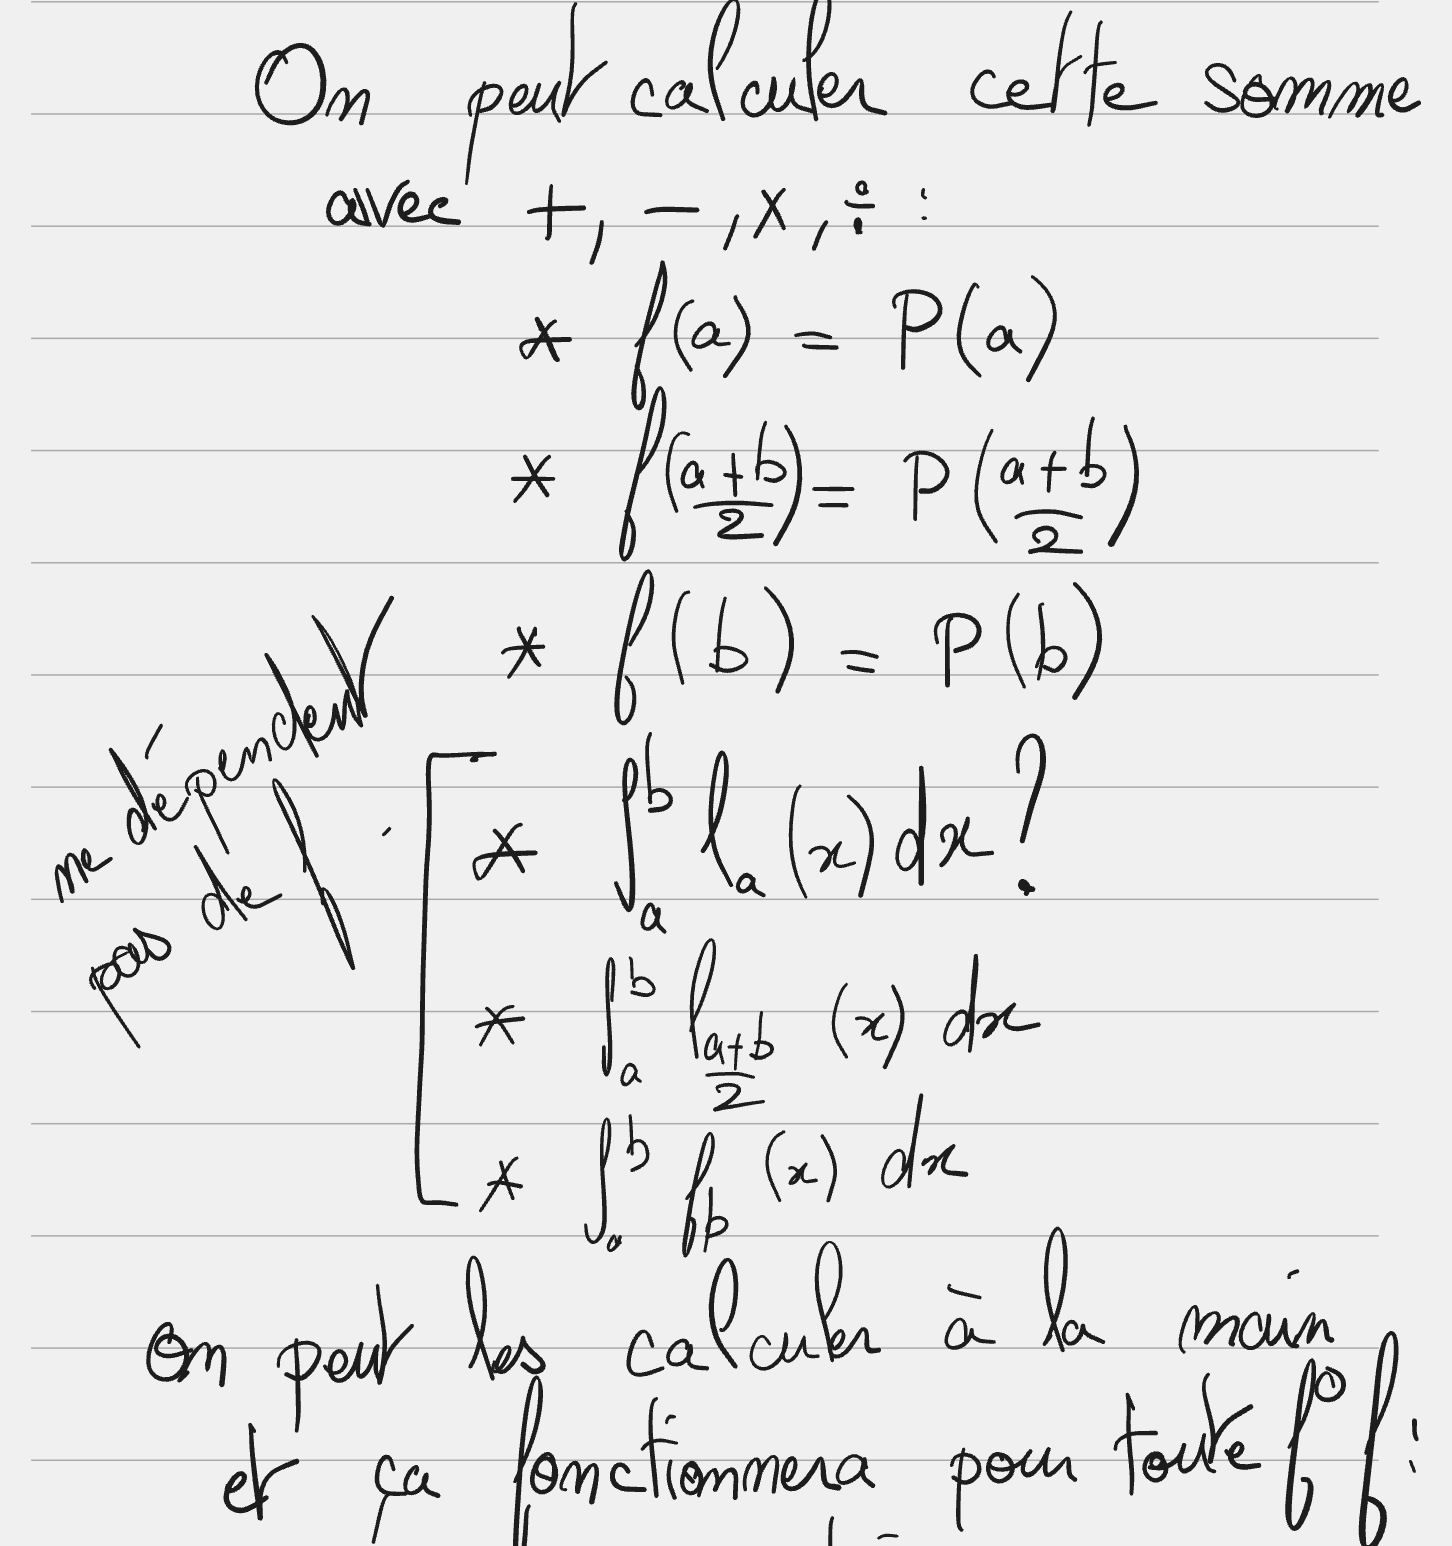 On peut calculer cette somme
avec +, -, x, ÷ :
* f(a) = P(a)
* f((a+b)/2) = P((a+b)/2)
* f(b) = P(b)
ne dépendent
pas de f
* ∫_a^b l_a (x) dx ?
* ∫_a^b l_{(a+b)/2} (x) dx
* ∫_a^b l_b (x) dx
On peut les calculer à la main
et ça fonctionnera pour toute f° f :